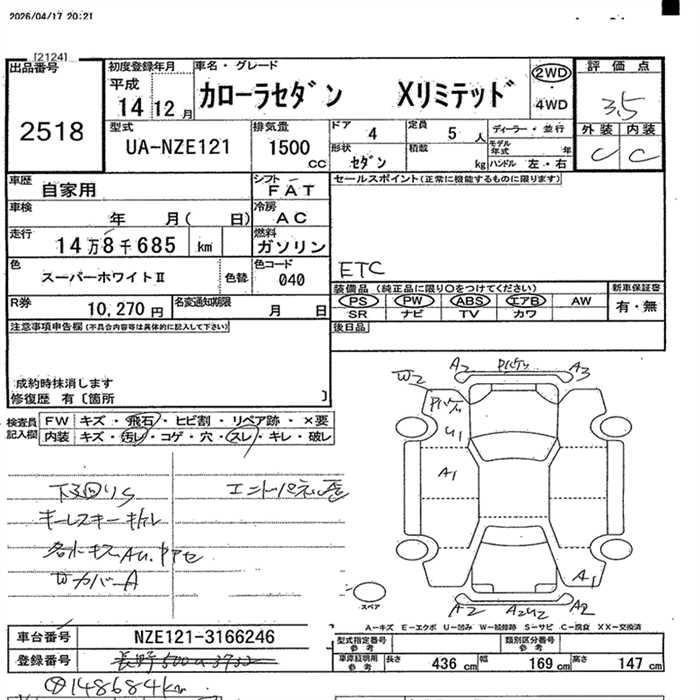 2026/04/17 20:21
[2124]
出品番号 2518
初度登録年月 平成 14 12 月
車名・グレード カローラセダン Xリミテッド
2WD
4WD
評価点 3.5
外装 C 内装 C
型式 UA-NZE121
排気量 1500 CC
ドア 4 定員 5 人 ディーラー・並行
形状 セダン 積載 kg モデル年式 年
ハンドル 左・右
車歴 自家用
シフト FAT
セールスポイント(正常に機能するものに限ります)
車検 年 月( 日)
冷房 AC
走行 14万8千685 km
燃料 ガソリン
ETC
色 スーパーホワイトII 色替
色コード 040
装備品 (純正品に限り○をつけてください) 新車保証書
PS PW ABS エアB AW 有・無
SR ナビ TV カワ
R券 10,270 円 名変通知期限 月 日
後日品
注意事項申告欄(不具合内容等は具体的に記入して下さい)
成約時抹消します
修復歴 有〔箇所 〕
検査員記入欄
FW キズ・飛石・ヒビ割・リペア跡・×要
内装 キズ・汚レ・コゲ・穴・スレ・キレ・破レ
下回りS
キーレスキー
Wカバー A
W2 A2 A3
U1
A1
A1
スペア
A2 A2U2 A2
A-キズ E-エクボ U-凹み W-補修跡 S-サビ C-腐食 XX-交換済
車台番号 NZE121-3166246
登録番号 長野 500
型式指定番号 参考 類別区分番号 参考
車庫証明用 参考 長さ 436 cm 幅 169 cm 高さ 147 cm
148684km